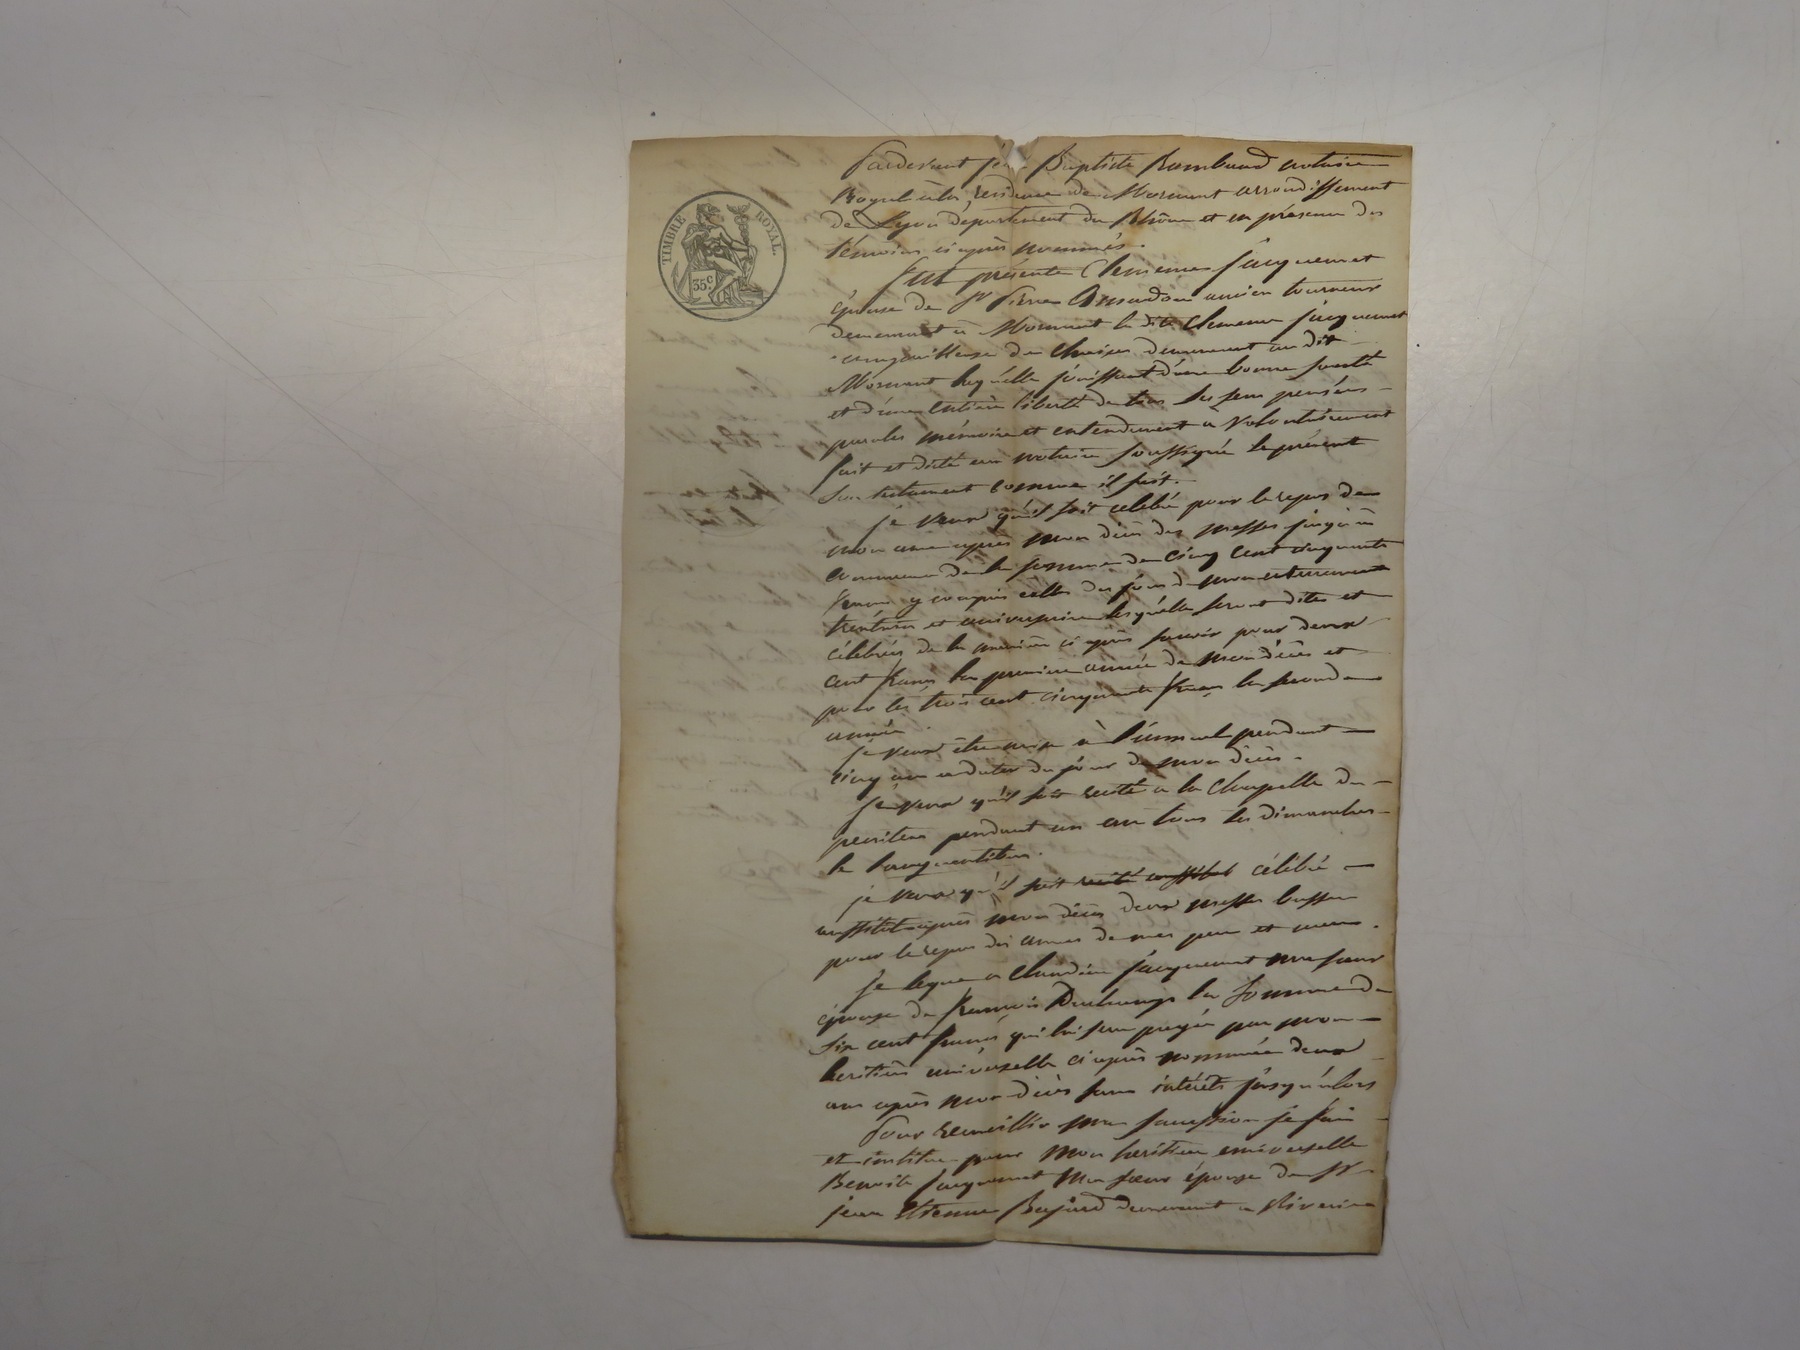 TIMBRE ROYAL.
35c.
Pardevant Jean Baptiste Rambaud notaire
Royal à la résidence de Mornant arrondissement
de Lyon département du Rhône et en présence des
témoins ci après nommés.
Fut présente Clemence Jacquemet
épouse de Sr Pierre ancien tourneur
demeurant à Mornant la dite Clemence Jacquemet
de chaises demeurant au dit
Mornant laquelle jouissant d'une bonne santé
et d'une entière liberté de tous ses sens pensées
paroles mémoire et entendement a volontairement
fait et dicté au notaire soussigné le présent
son testament comme il suit.
je veux qu'il soit célébré pour le repos de
mon ame après mon décès des messes jusqu'à
de la somme de cinq cent cinquante
francs y compris celles du jour de mon enterrement
et anniversaire lesquelles seront dites et
célébrées de la manière ci après savoir pour deux
cent francs la première année de mon décès et
pour les trois cent cinquante francs la seconde
année.
je veux être mise à l'annuel pendant
cinq ans a dater du jour de mon décès.
je veux qu'il soit récité a la chapelle de
penitens pendant un an tous les dimanches
le
je veux qu'il soit récité aussitot célébré
aussitot après mon décès deux messes basses
pour le repos des ames de mes pere et mere.
je legue a Claudine Jacquemet ma sœur
épouse de François Duchamp la somme de
six cent francs qui lui sera payée par mon
heritière universelle ci après nommée deux
ans après mon décès sans intérêts jusqu'alors
Pour recueillir ma succession je fais
et institue pour mon heritiere universelle
Benoite Jacquemet ma sœur épouse de Sr
jean Etienne Bajard demeurant a Riverie